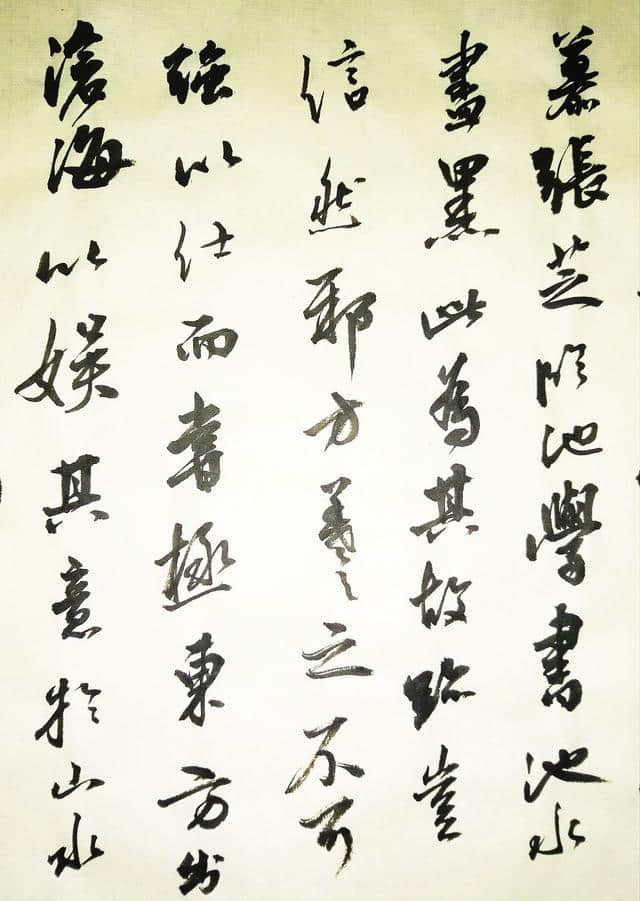 慕張芝臨池學書池水
盡黑此為其故跡豈
信然耶方羲之之不可
強以仕而嘗極東方出
滄海以娛其意於山水